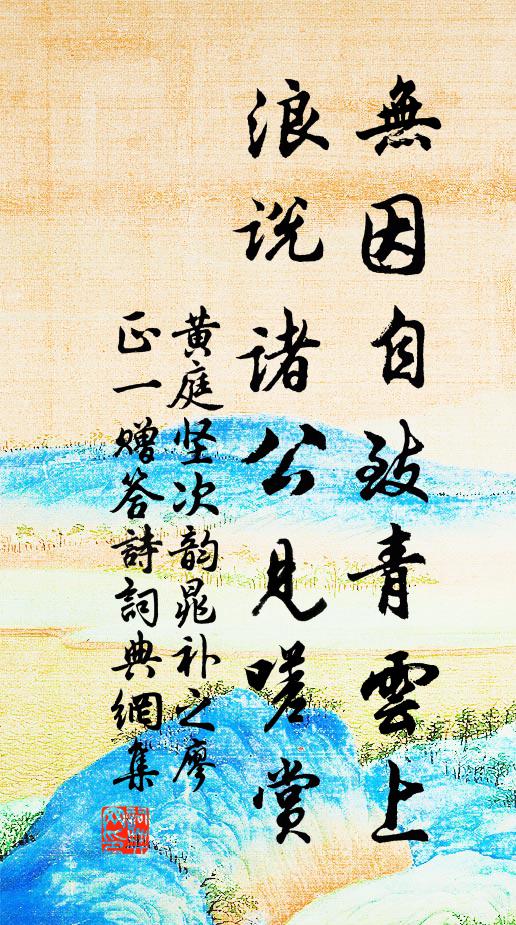 無因自致青雲上
浪说诸公見嗟赏
黄庭坚次韵晁补之廖
正一赠答詩詞典網集